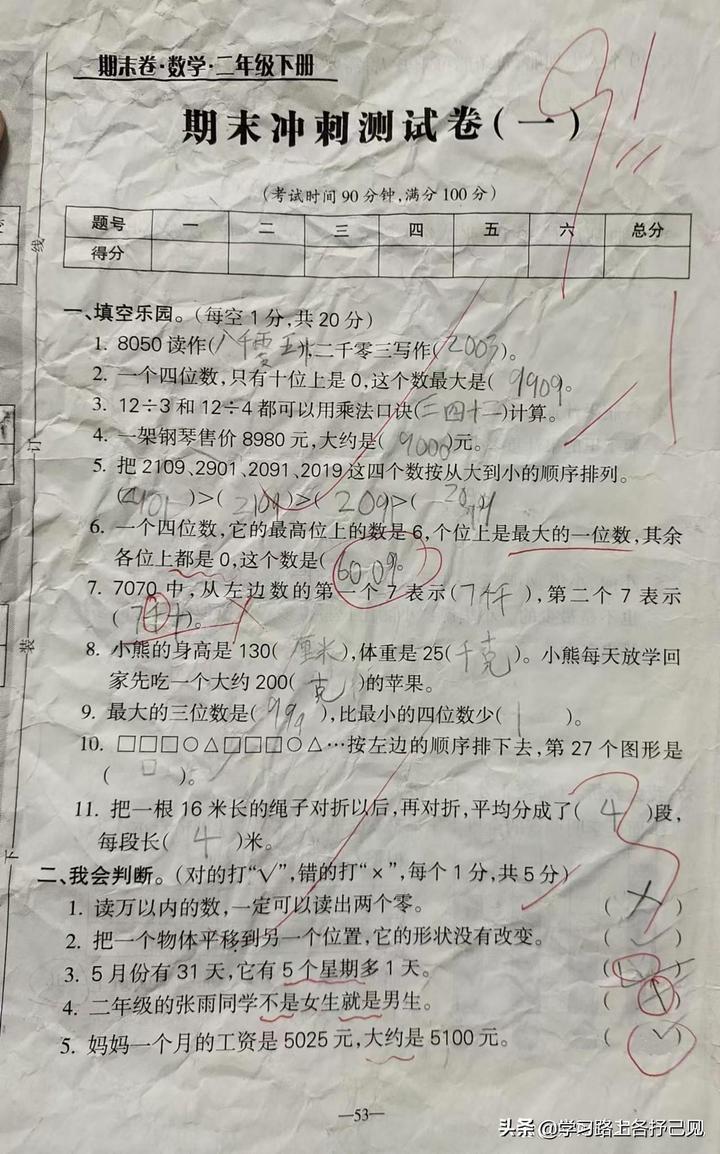 期末卷·数学·二年级下册
期末冲刺测试卷(一)
(考试时间90分钟,满分100分)
题号 一 二 三 四 五 六 总分
得分
线
订
装
下
一、填空乐园。(每空1分,共20分)
1. 8050读作(八千零五十),二千零三写作(2003)。
2. 一个四位数,只有十位上是0,这个数最大是(9909。
3. 12÷3和12÷4都可以用乘法口诀(三四十二)计算。
4. 一架钢琴售价8980元,大约是(9000)元。
5. 把2109、2901、2091、2019这四个数按从大到小的顺序排列。
( )>(2109)>(2091)>(2019
6. 一个四位数,它的最高位上的数是6,个位上是最大的一位数,其余
各位上都是0,这个数是(6009。
7. 7070中,从左边数的第一个7表示(7个千),第二个7表示
( )。
8. 小熊的身高是130(厘米),体重是25(千克)。小熊每天放学回
家先吃一个大约200(克)的苹果。
9. 最大的三位数是(999),比最小的四位数少(1)。
10. □□□○△□□□○△…按左边的顺序排下去,第27个图形是
(□)。
11. 把一根16米长的绳子对折以后,再对折,平均分成了(4)段,
每段长(4)米。
二、我会判断。(对的打“√”,错的打“×”,每个1分,共5分)
1. 读万以内的数,一定可以读出两个零。 (×)
2. 把一个物体平移到另一个位置,它的形状没有改变。 (√)
3. 5月份有31天,它有5个星期多1天。 ( )
4. 二年级的张雨同学不是女生就是男生。 (×)
5. 妈妈一个月的工资是5025元,大约是5100元。 (√)
—53—
头条 @学习路上各抒己见